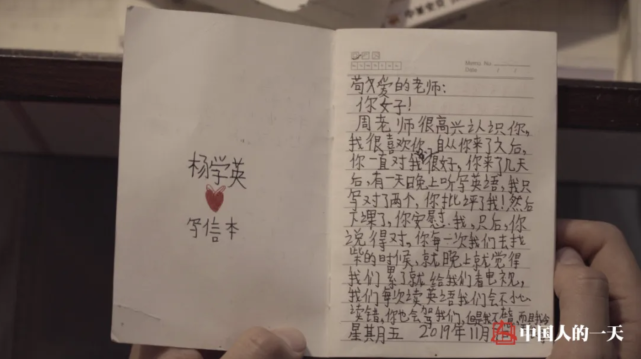 杨学英
写信本
Memo No.
Date
敬爱的老师:
你好!
周老师很高兴认识你,
我很喜欢你,自从你来了久后,
你一直对我很好,你来了几天
后,有一天晚上听写英语,我只
写对了两个,你批评了我!然后
下课了,你安慰我,只后,你
说得对,你每一次我们去找
柴的时候,就晚上就觉得
我们累了就给我们看电视,
我们每次读英语我们会不小心
读错,你也会骂我们,但是我不
星其月五 2019年11月
中国人的一天